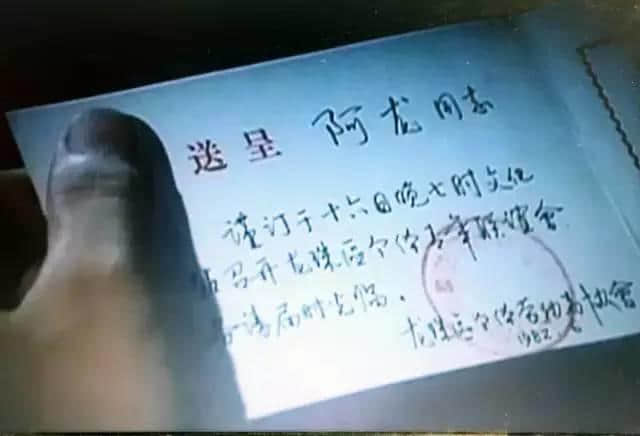 送呈 阿龙同志
谨订于十六日晚七时文化
召开龙珠区个体青年联谊会
请届时光临。
龙珠区个体劳动者协会
1982.